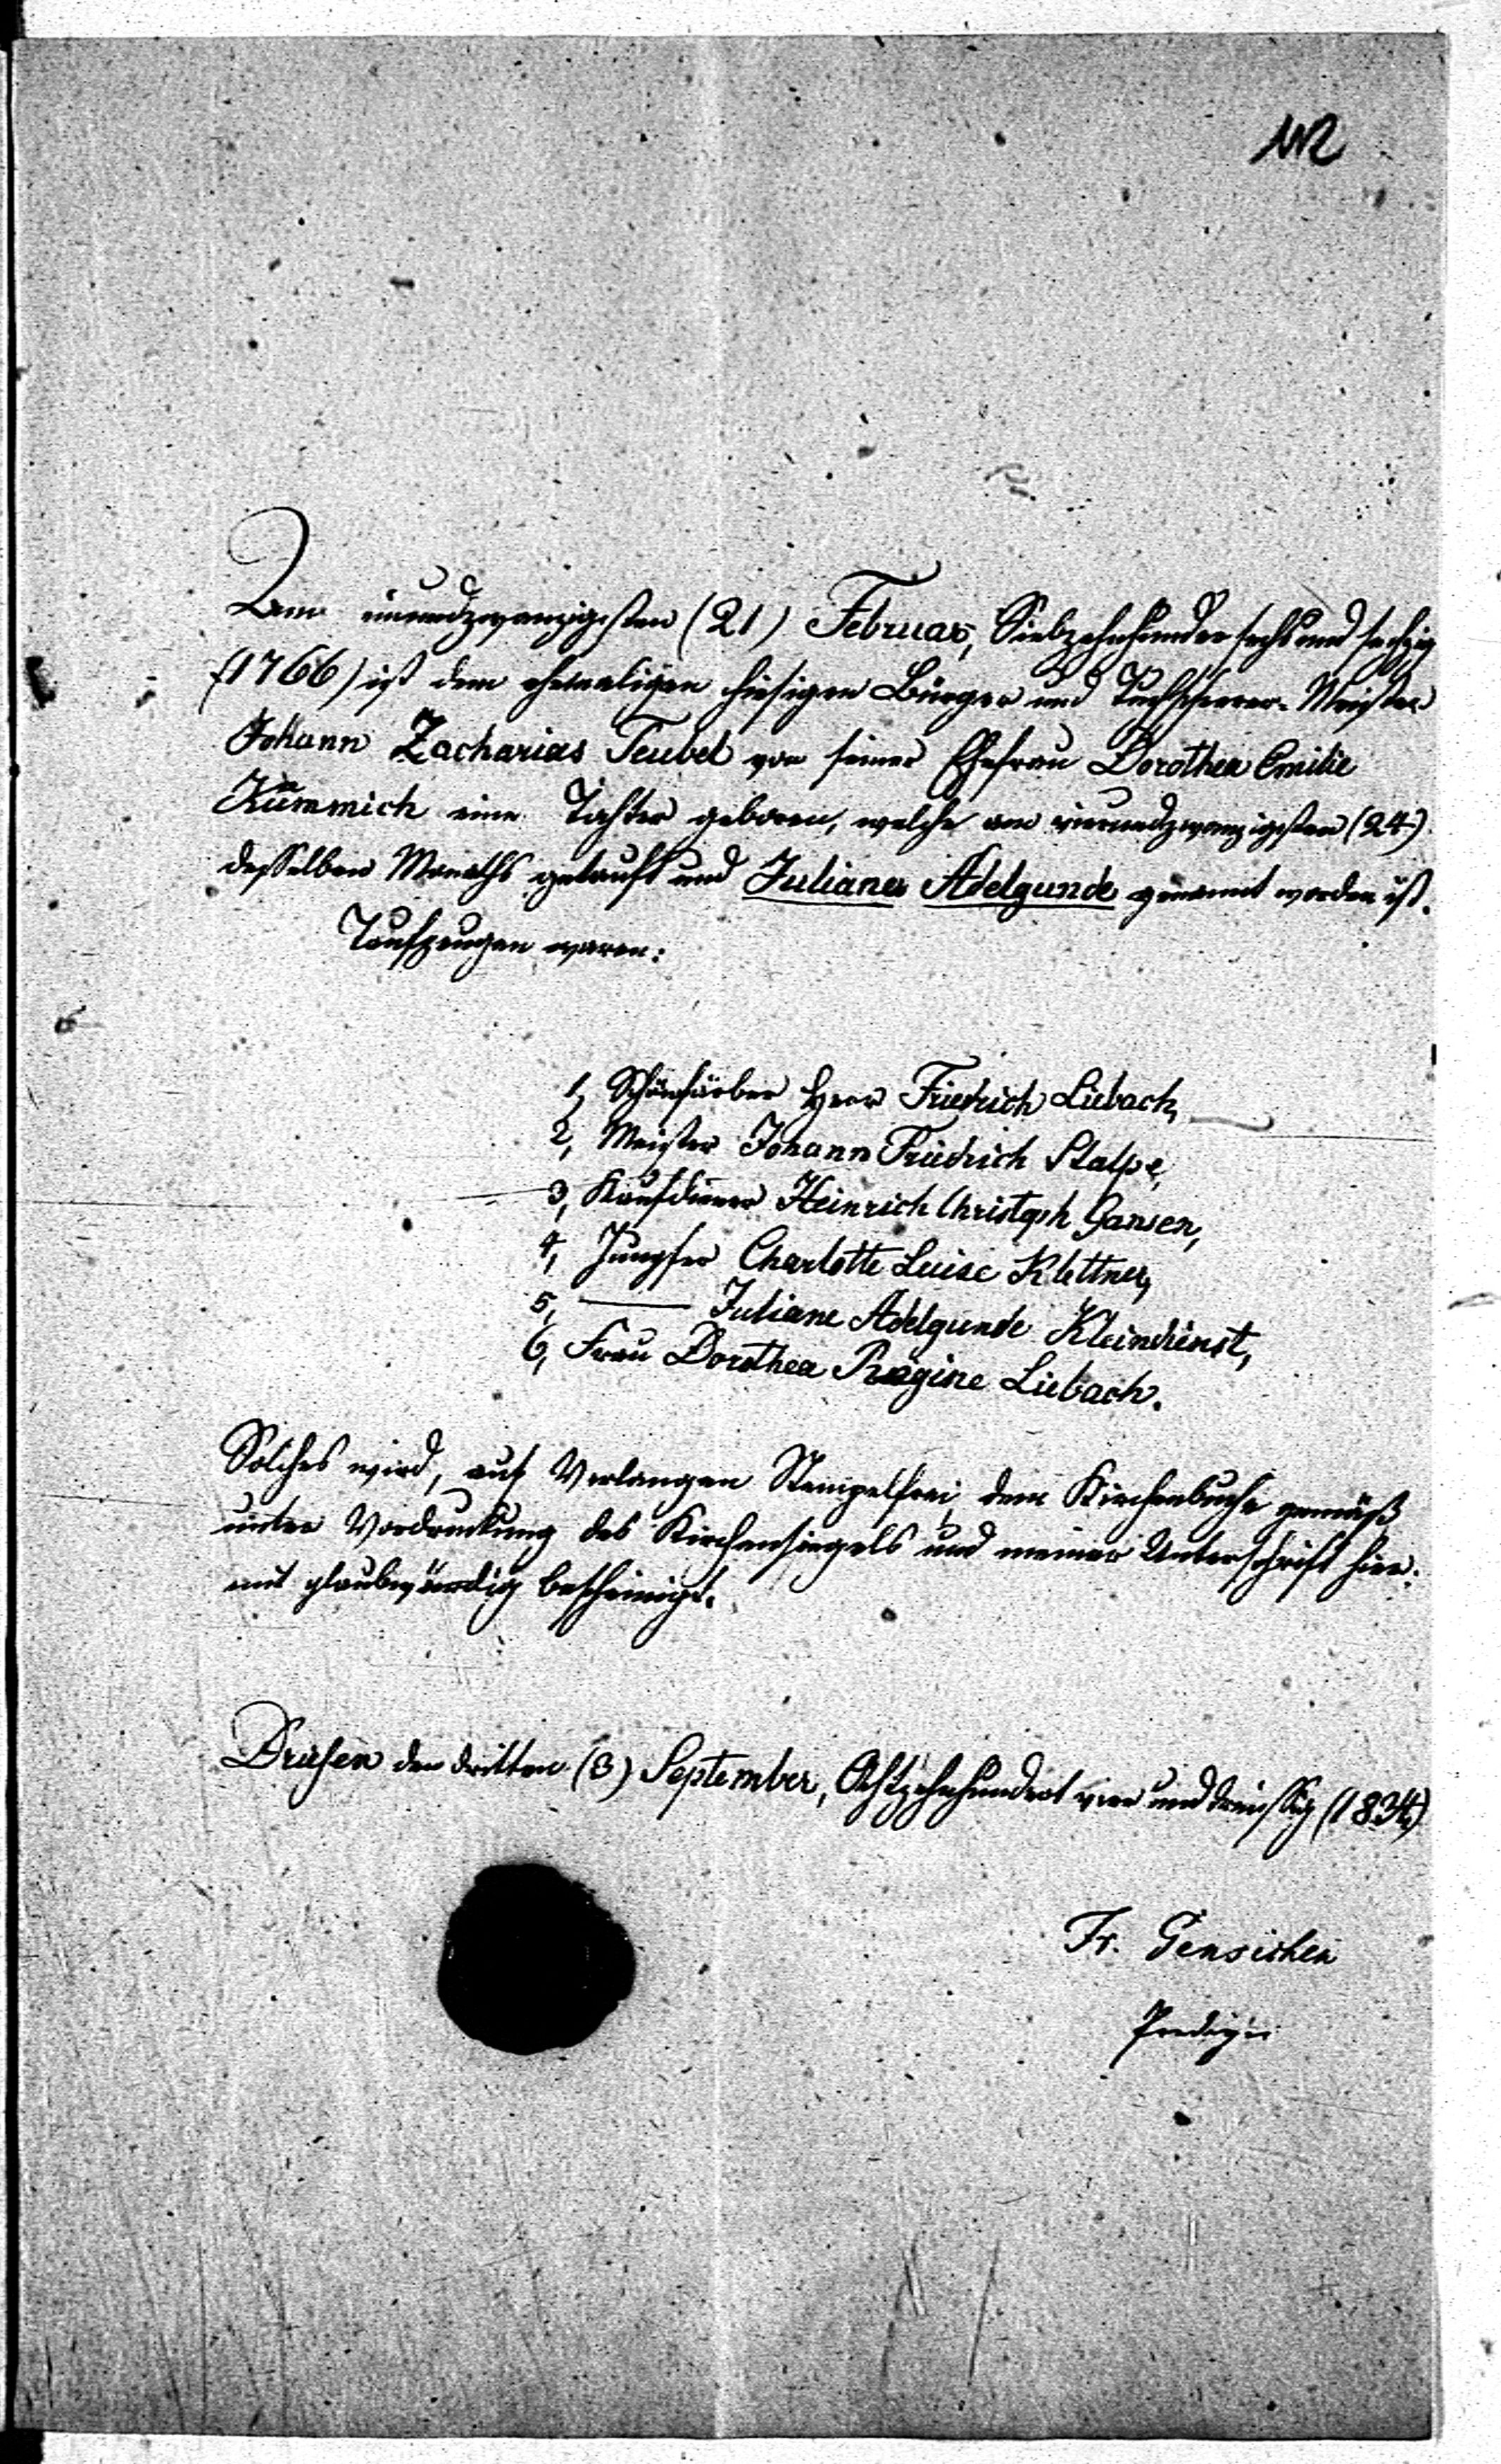 112
Am einundzwanzigsten (21) Februar, Siebzehnhundert sechs und sechzig
(1766) ist dem ehemaligen hiesigen Bürger und Tuchscherer-Meister
Johann Zacharias Teubel von seiner Ehefrau Dorothea Emilie
Kümmich eine Tochter geboren, welche am vierundzwanzigsten (24)
desselben Monaths getauft und Juliane Adelgunde genannt worden ist.
Taufzeugen waren:
1, Schönfärber Herr Friedrich Liebach,
2, Meister Johann Friedrich Stalpe,
3, Kaufdiener Heinrich Christoph Gansen,
4, Jungfer Charlotte Luise Klettner,
5, —— Juliane Adelgunde Kleindienst,
6, Frau Dorothea Regine Liebach.
Solches wird, auf Verlangen Stempelfrei, dem Kirchenbuche gemäß
unter Vordruckung des Kirchensiegels und meiner Unterschrift hier-
mit glaubwürdig bescheinigt.
Driesen den dritten (3) September, Achtzehnhundert vier und dreissig (1834)
Fr. Gensichen
Prediger